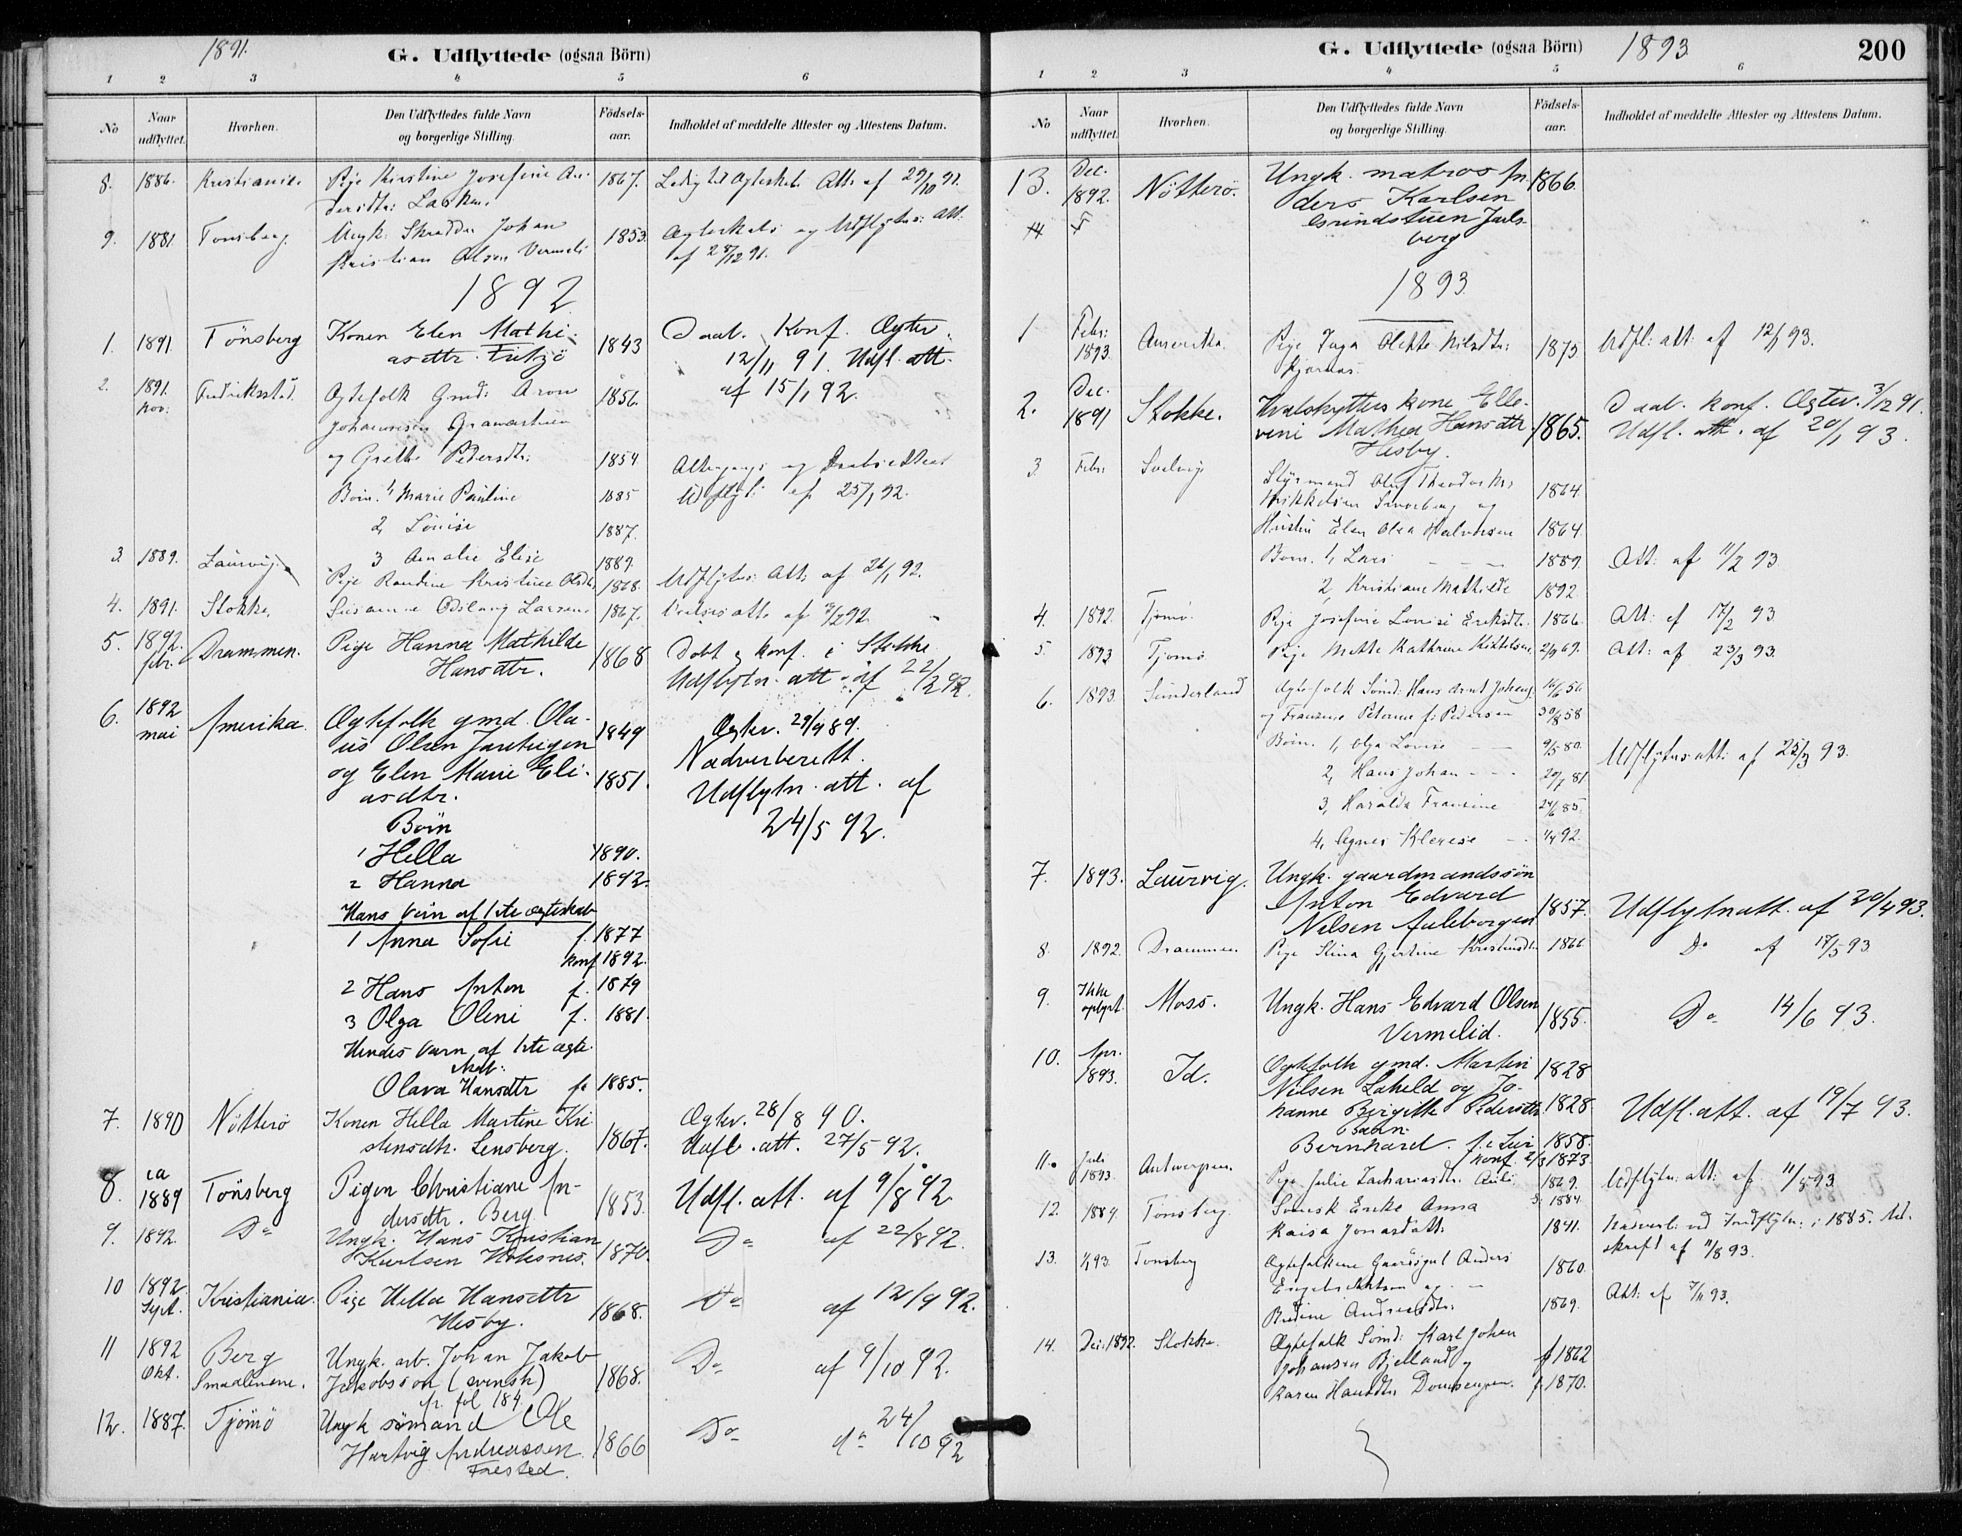 1891.
G. Udflyttede (ogsaa Börn)
1 2 3 4 5 6
No
Naar udflyttet.
Hvorhen.
Den Udflyttedes fulde Navn
og borgerlige Stilling.
Födsels-
aar.
Indholdet af meddelte Attester og Attestens Datum.
8. 1886. Kristiania. Pige Kirstine Josefine An- 1867. Ledig til Ægteskab Att. af 29/10 91.
dersdtr:
9. 1881 Tönsberg. Ungk. Skrædder Johan 1853. Ægteskabs og Udflytn: Att.
Kristian Olsen Vermeli af 28/12 91.
1892
1. 1891 Tönsberg Konen Elen Mathi- 1843 Daab. Konf. Ægtev.
asdtr. Fritzö 12/11 91. Udfl. att.
af 15/1 92.
2. 1891. Nov: Fredriksstad. Ægtefolk Gmd: Aron 1856.
Johannesen
og Grethe Pedersdtr: 1854
Börn. 1, Marie Pauline 1885 Udflyt: af 25/1 92.
2, Louise 1887.
3 Amalie Elise 1889.
3. 1889. Laurvig Pige Randine Kristine Olsdtr. 1868. Udflytn: Att: af 26/1 92.
4. 1891. Stokke. Susanne Larsen 1867. att. af 3/2 92.
5. 1892. febr. Drammen. Pige Hanna Mathilde 1868 Döbt & konf. i Stokke
Hansdtr. Udflytn. att. af 22/2 92.
6. 1892 mai Amerika. Ægtefolk gmd. Ola- 1849 Ægtv. 29/9 89.
us Olsen Jarebigen Nadverberett.
og Elen Marie Eli- 1851. Udflytn. att. af
asdtr. 24/5 92.
Börn
1 Hella 1890.
2 Hanna 1892.
Hans börn af 1ste ægteskab
1 Anna Sofie f. 1877
konf 1892.
2 Hans Anton f. 1879
3 Olga Oleni f. 1881.
Hendes barn af 1ste ægte-
skab:
Olava Hansdtr f. 1885.
7. 1890 Nötterö Konen Hella Martine Kri- 1867. Ægtv. 28/8 90.
stensdtr. Lensberg. Udfl. att. 27/5 92.
8. ca 1889 Tönsberg Pigen Christiane An- 1853. Udfl. att. af 9/8 92
dersdtr. Berg
9. 1892. Do Ungk. Hans Kristian 1870. Do af 22/8 92.
Karlsen
10 1892. Sept. Kristiania. Pige Hella Hansdtr 1868. Do af 12/9 92.
Hesby.
11 1892 Okt. Berg Smaalenene. Ungk. arb. Johan Jakob 1868. Do af 9/10 92.
Jakobsson (svensk)
fr. fol 184
12. 1887. Tjömö Ungk sömand Ole 1866 Do do 24/10 92
Hartvig Andreassen
Frested.
G. Udflyttede (ogsaa Börn) 1893 200
1 2 3 4 5 6
No
Naar udflyttet.
Hvorhen.
Den Udflyttedes fulde Navn
og borgerlige Stilling.
Födsels-
aar.
Indholdet af meddelte Attester og Attestens Datum.
13. Dec. 1892. Nötterö. Ungk. matros An- 1866.
ders Karlsen
Grindstuen Jarls-
berg
14
1893
1 Febr: 1893. Amerika. Pige Inga Olette Nilsdtr: 1875 Udfl: att: af 12/1 93.
2. Dec. 1891 Stokke. Hvalskytters kone Elle- 1865. Daab. Konf. Ægtev. 3/12 91.
vine Mathea Hansdtr Udfl. att. af 20/1 93.
Hesby.
3 Febr: Svelvig Styrmand Oluf Theodor 1864.
og
Hustru Elen Olea Halvorsen 1864.
Börn. 1, Lars 1889. Att: af 11/2 93
2, Kristiane Mathilde 1892
4. 1892. Tjömö. Pige Josefine Louise Eriksdtr. 1866. Att: af 17/2 93
5. 1893 Tjömö Pige Mette Kathrine Kittelsen 69. Att: af 23/3 93.
6. 1893. Sunderland Ægtefolk Sömd: Hans 56
og Fransine Petrine f. Pedersen 30/8 58
Börn. 1, Olga Lovise 9/5 80.
2, Hans Johan 20/7 81 Udflytnsatt: af 25/3 93.
3, Haralda Fransine 24/6 85.
4, Agnes 92.
7. 1893. Laurvig. Ungk. gaardmandssön 1857. Udflytnatt. af 20/4 93.
Anton Edvard
Nilsen Auleborgen
8. 1892. Drammen Pige Stina Gjertine 1866 Do af 17/5 93
9. Ikke opgt. Moss. Ungk. Hans Edvard Olsen 1855. Do 14/6 93.
Vermelid.
10. Apr. 1893. Id. Ægtefolk gmd. Martin 1828
Nilsen og Jo-
hanne Birgitte Pedersdtr. 1828. Udfl. att. af 19/7 93.
Barn
Bernhard 1858.
konf. 1873
11. Juli 1893. Antwerpen. Pige Julie Zachariasdtr. Auli 1869. Udflytn: att: af 11/8 93
12. 1884. Tönsberg. Svensk Enke Anna 1841. ved Indflytn: i 1885. Ud-
Kaisa Jonasdatter skrift af 11/8 93.
13. Tönsberg Ægtefolkene Anders 1860
Engebrektsen og
Andreasdtr: 1869. Att: af 7/11 93.
14. Dec: 1892. Stokke. Ægtefolk Sömd: Karl Johan
Johansen Bjelland og f 1862
Karen Hansdtr. f. 1870.